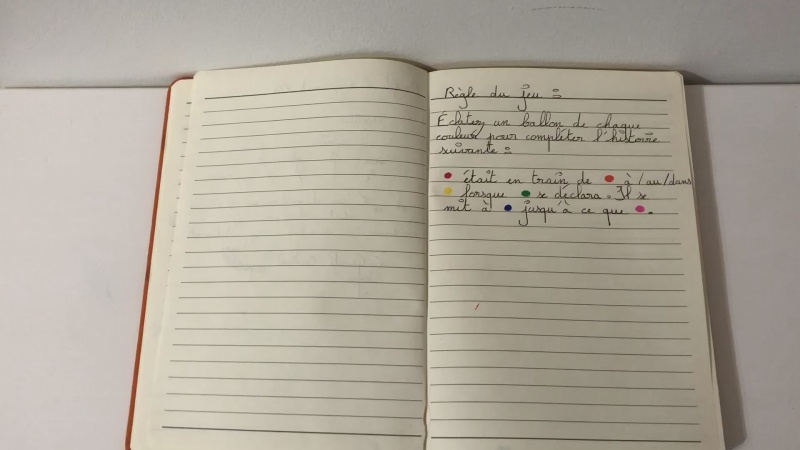 Règle du jeu :
Éclatez un ballon de chaque
couleur pour compléter l'histoire
suivante :
était en train de à / au / dans
lorsque se déclara. Il se
mit à jusqu'à ce que .